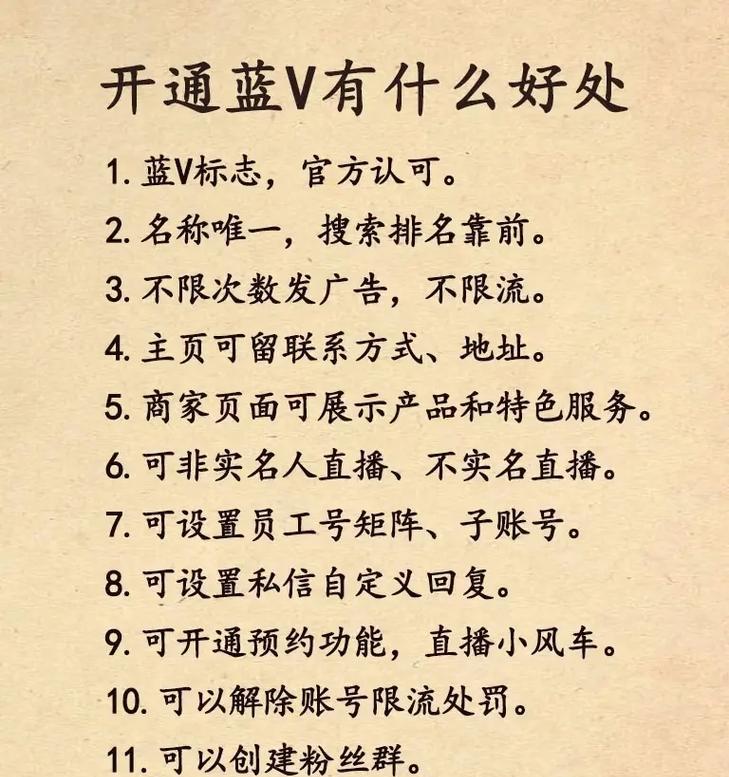 开通蓝V有什么好处
1. 蓝V标志，官方认可。
2. 名称唯一，搜索排名靠前。
3. 不限次数发广告，不限流。
4. 主页可留联系方式、地址。
5. 商家页面可展示产品和特色服务。
6. 可非实名人直播、不实名直播。
7. 可设置员工号矩阵、子账号。
8. 可设置私信自定义回复。
9. 可开通预约功能，直播小风车。
10. 可以解除账号限流处罚。
11. 可以创建粉丝群。